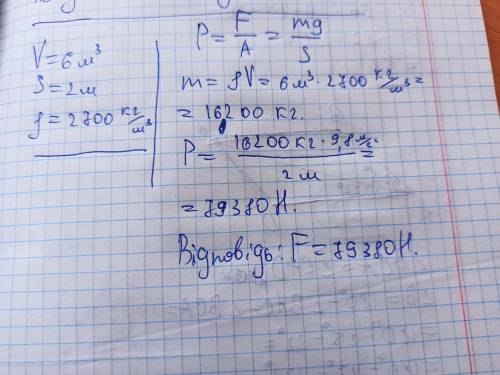 V = 6 м³
S = 2 м
ρ = 2700 кг/м³
P = F/A = mg/S
m = ρV = 6 м³ · 2700 кг/м³ =
= 16200 кг.
P = 16200 кг · 9,8 м/с² / 2 м =
= 79380 Н.
Відповідь: F = 79380 Н.